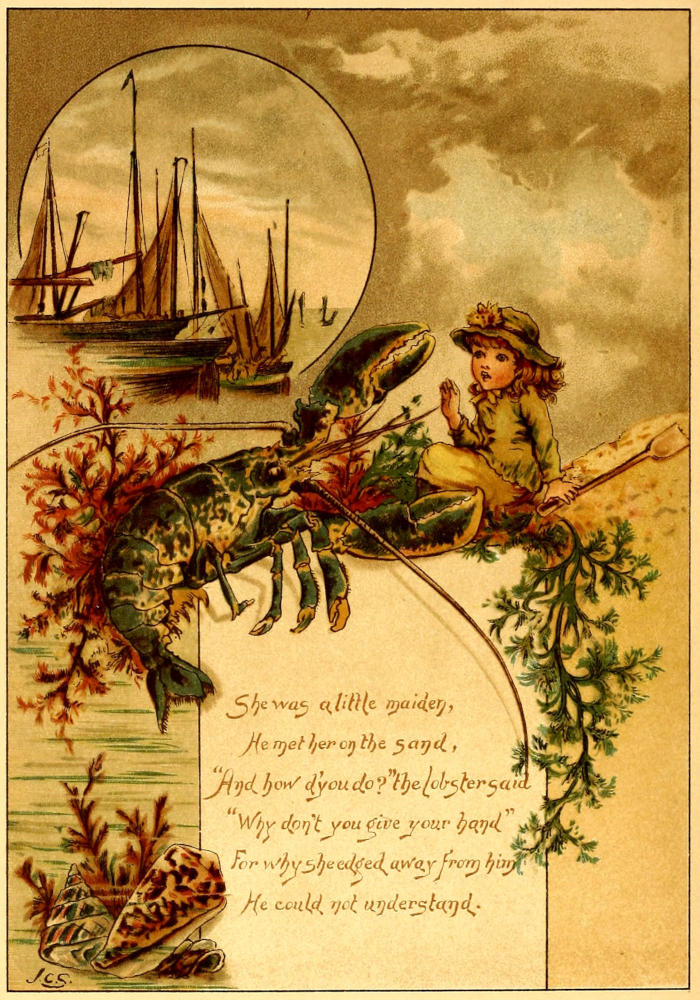 She was a little maiden,
He met her on the sand,
"And how d'you do?" the lobster said
"Why don't you give your hand"
For why she edged away from him
He could not understand.
J.C.S.